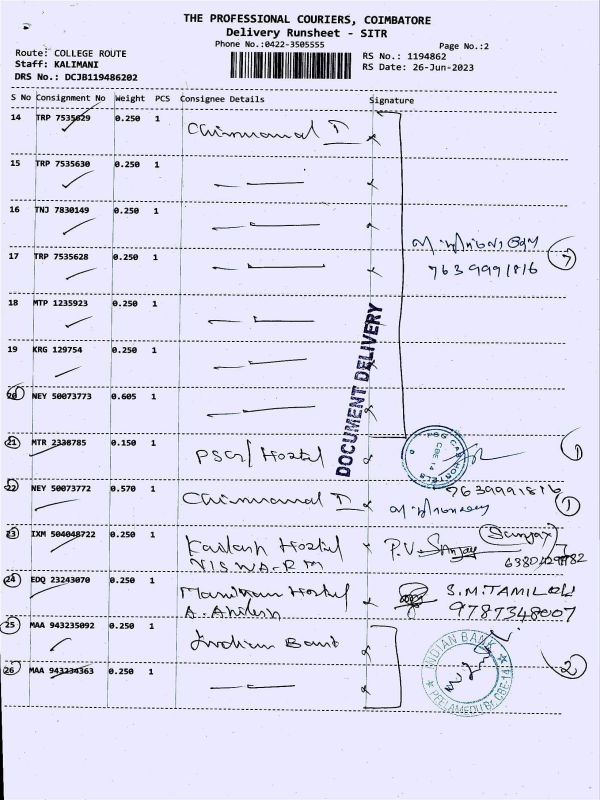 THE PROFESSIONAL COURIERS, COIMBATORE
Delivery Runsheet - SITR
Phone No.:0422-3505555
Page No.:2
Route: COLLEGE ROUTE
Staff: KALIMANI
DRS No.: DCJB119486202
RS No.: 1194862
RS Date: 26-Jun-2023
S No Consignment No Weight PCS Consignee Details Signature
14 TRP 7535629 0.250 1
15 TRP 7535630 0.250 1
16 TNJ 7830149 0.250 1
17 TRP 7535628 0.250 1
7639991816
7
18 MTP 1235923 0.250 1
19 KRG 129754 0.250 1
DOCUMENT DELIVERY
20 NEY 50073773 0.605 1
21 MTR 2338785 0.150 1 Hostel
1
22 NEY 50073772 0.570 1
7639991816
1
23 IXM 504048722 0.250 1 Kailash Hostel P.V. Sanjay (Sanjay)
VISWA-R M
24 EDQ 23243070 0.250 1 Hostel S.M.TAMIL
A. Akilesh 9787348007
25 MAA 943235092 0.250 1 Indian Bank
INDIAN BANK
26 MAA 943234363 0.250 1
2